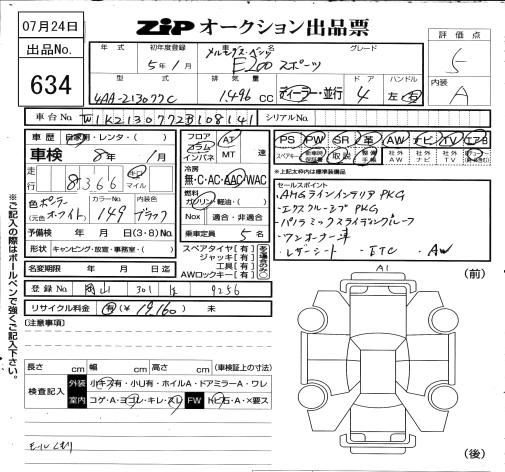 07月24日 ZIP オークション出品票 評価点
出品No. 634 5
年式 初年度登録 車名 グレード
5年1月 メルセデス・ベンツ E200 スポーツ
型式 排気量 ドア ハンドル 内装
4AA-213077C 1496 CC ディーラー・並行 4 左・右 A
車台No W1K2130772B108141 シリアルNo.
車歴 自家用・レンタ・( )
車検 8年 1月
走行 8366 キロ マイル
色 ポーラーホワイト カラーNo. 149 内装色 ブラック
(元色 )
予備検 年 月 日(3・8)No.
形状 キャンピング・放宣・事務室・( )
名変期限 年 月 日迄 AWロックキー[有]
フロア コラム インパネ AT MT 速
冷房 無・C・AC・AAC・WAC
燃料 ガソリン・軽油・( )
Nox 適合・非適合
乗車定員 5名
スペアタイヤ[有]
ジャッキ[有]
工具[有]
PS PW SR 革 AW ナビ TV エアB
スペアキー 取説 社外ナビ 社外TV
※上記太枠内は標準装備品
セールスポイント
・AMGラインインテリアPKG
・エクスクルーシブPKG
・パノラミックスライディングルーフ
・ワンオーナー車
・レザーシート ・ETC ・AW
登録No 岡山 301 9256
リサイクル料金 有(¥19160) 未
(注意事項)
長さ cm 幅 cm 高さ cm (車検証上の寸法)
検査記入 外装 小キズ有・小U有・ホイルA・ドアミラーA・ワレ
室内 コゲ・A・ヨゴレ・キレ・スレ FW トビ石・A・×要ス
モールくもり
A1
(前)
(後)
※ご記入の際はボールペンで強くご記入下さい。